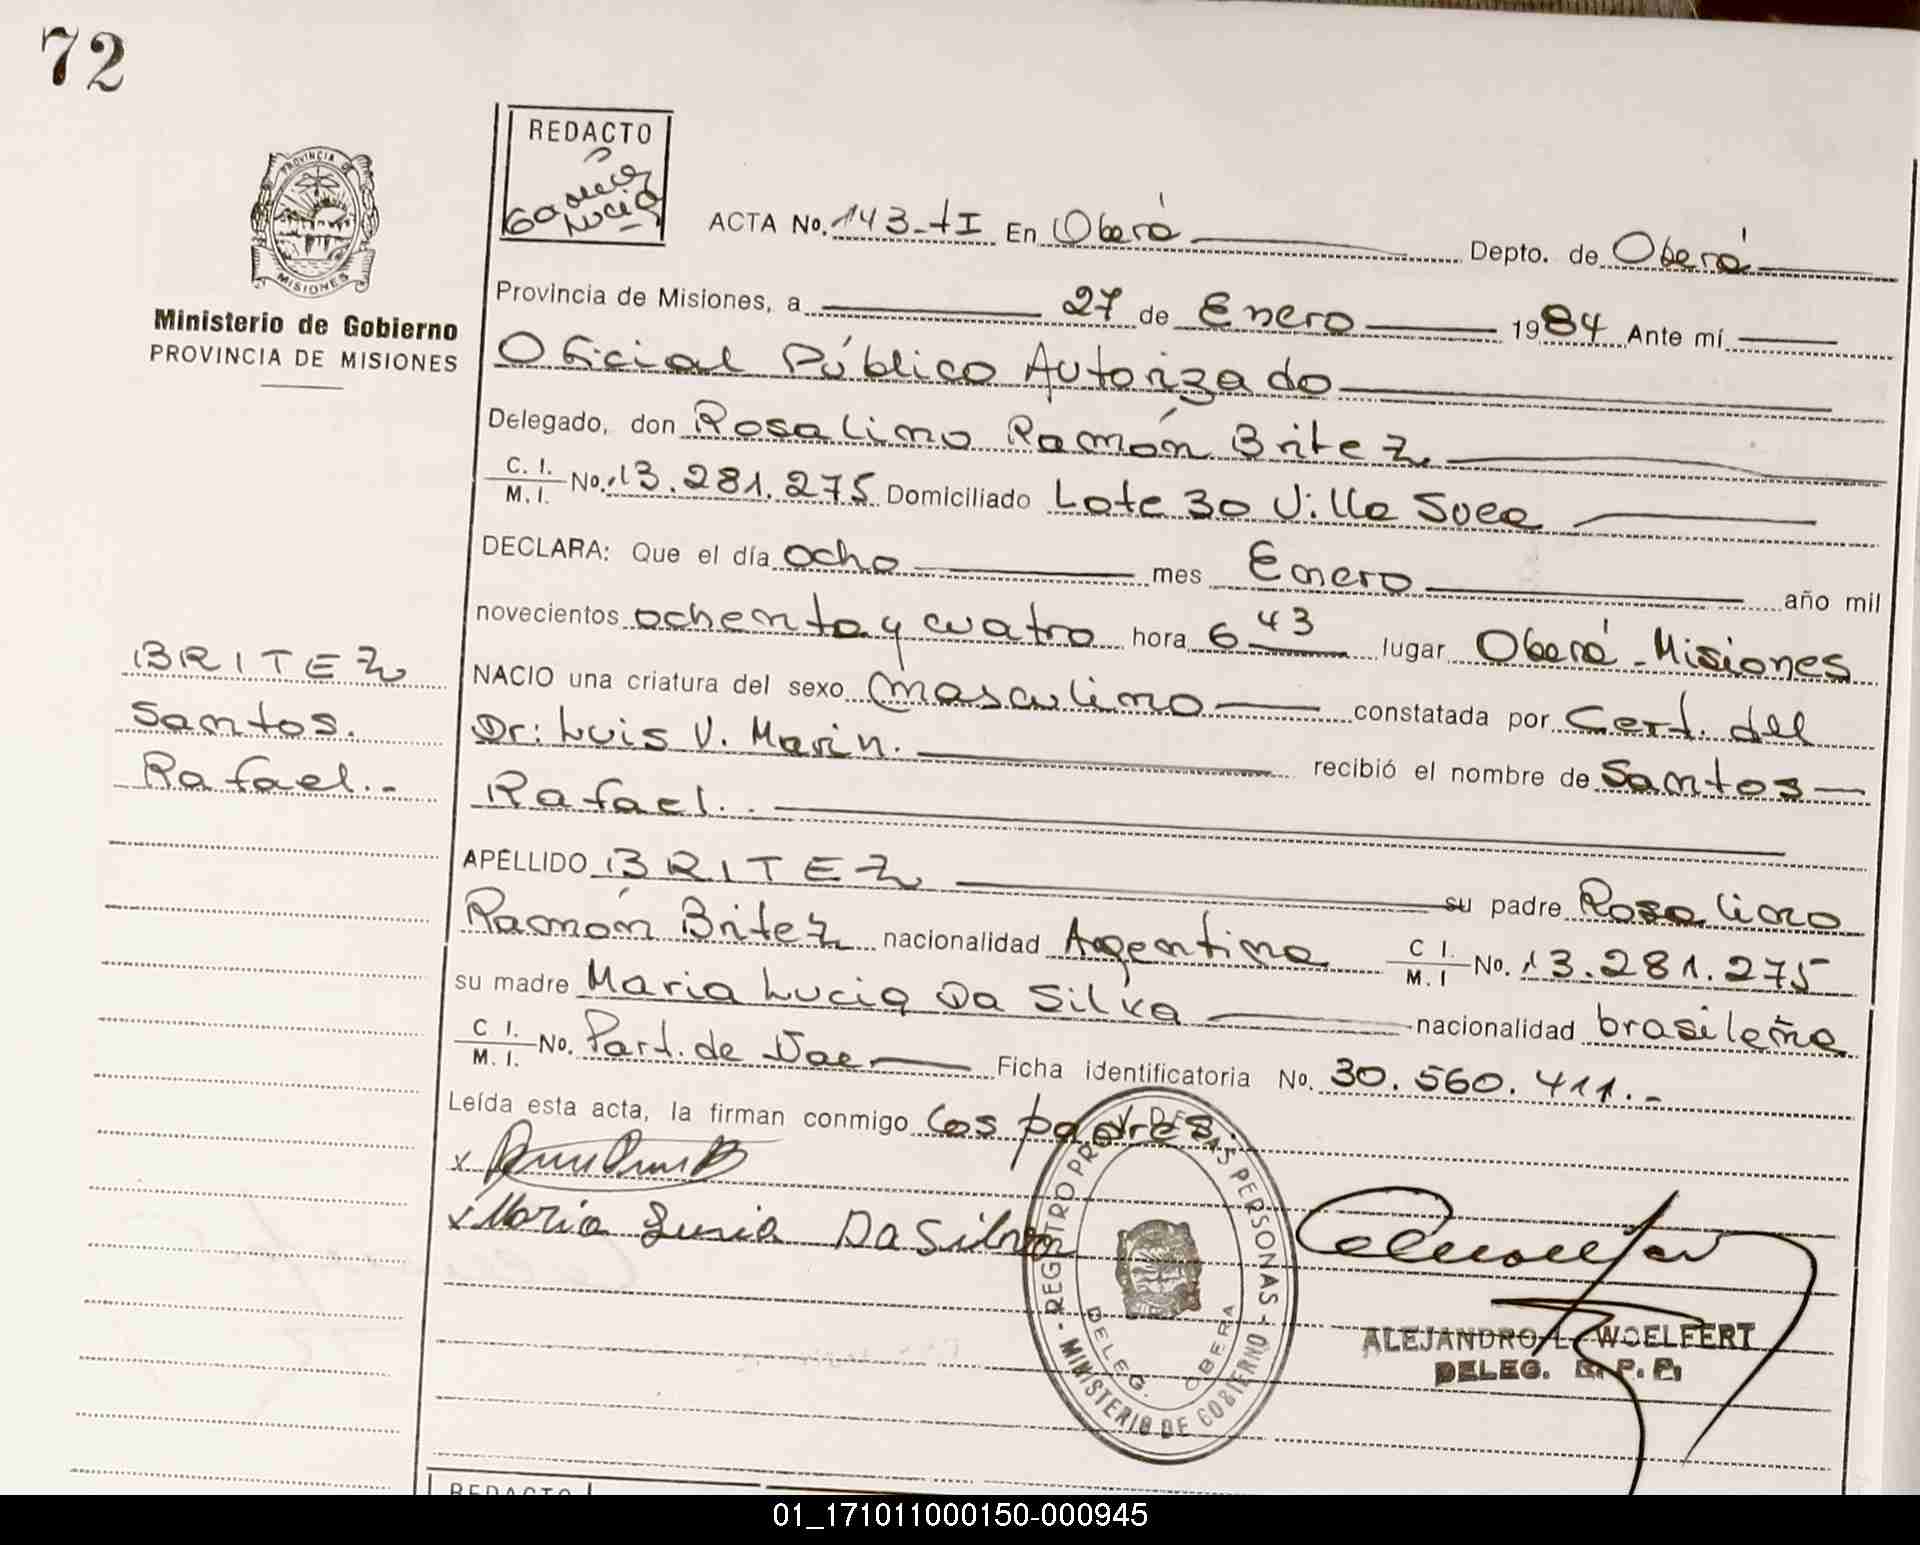 72
REDACTO
García
Lucia
PROVINCIA DE
MISIONES
Ministerio de Gobierno
PROVINCIA DE MISIONES
ACTA No. 143-tI En Oberá Depto. de Oberá
Provincia de Misiones, a 27 de Enero 1984 Ante mí
Oficial Público Autorizado
Delegado, don Rosalino Ramón Britez
C. I. / M. I. No. 13.281.275 Domiciliado Lote 30 Villa Svea
DECLARA: Que el día ocho mes Enero año mil
novecientos ochenta y cuatro hora 6 43 lugar Oberá - Misiones
NACIO una criatura del sexo masculino constatada por Cert. del
Dr: Luis V. Marin. recibió el nombre de Santos
Rafael.
APELLIDO BRITEZ su padre Rosalino
Ramón Britez nacionalidad Argentina C I. / M. I No. 13.281.275
su madre Maria Lucia Da Silva nacionalidad brasileña
C I. / M. I. No. Part. de Nac Ficha identificatoria No. 30.560.411.-
Leída esta acta, la firman conmigo los padres.
x
x Maria Lucia Da Silva
BRITEZ
Santos.
Rafael.-
REGISTRO PROV. DE LAS PERSONAS - MINISTERIO DE GOBIERNO -
DELEG. OBERA
ALEJANDRO L. WOELFERT
DELEG. R. P. P.
REDACTO
01_171011000150-000945